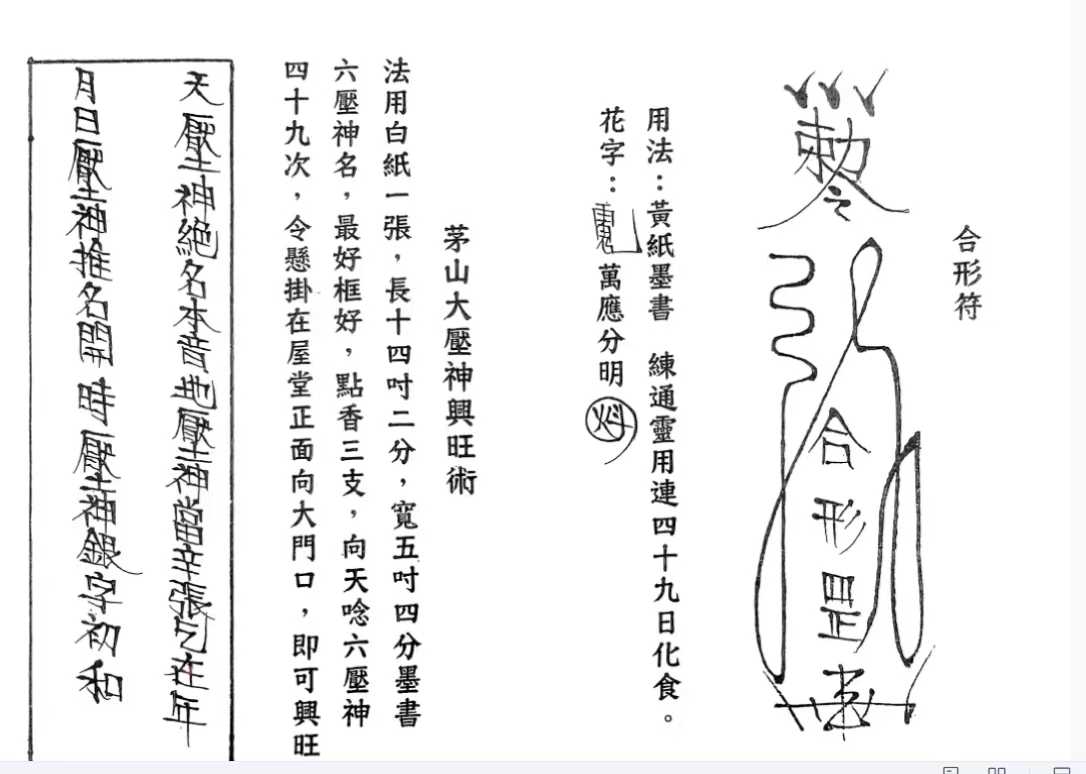 合形符
勅令
合形罡
用法：黃紙墨書　練通靈用連四十九日化食。
花字：萬應分明
茅山大壓神興旺術
法用白紙一張，長十四吋二分，寬五吋四分墨書
六壓神名，最好框好，點香三支，向天唸六壓神
四十九次，令懸掛在屋堂正面向大門口，即可興旺
天壓神絕名本音地壓神當辛張乞在年
月日壓神推名開時壓神銀字初和